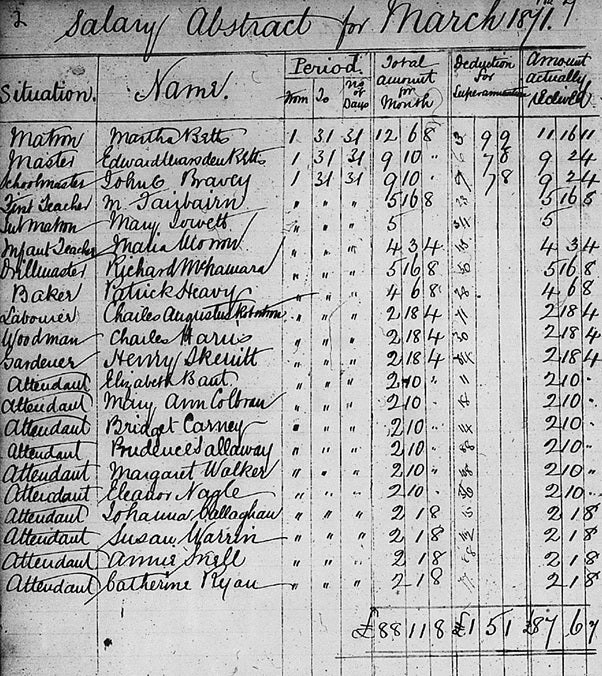 2 Salary Abstract for March 1871.
Situation. Name. Period. From To No of Days Total amount for Month Deduction for Superannuation Amount actually received
Matron Martha Betts 1 31 31 12 6 8 9 9 11 16 11
Master Edward Marsden Betts 1 31 31 9 10 " 7 8 9 2 4
Schoolmaster John C Bravey 1 31 31 9 10 " 7 8 9 2 4
First Teacher M. Fairbairn " " " 5 16 8 5 16 8
Sub Matron Mary Lovett " " " 5 5
Infant Teacher Maria " " " 4 3 4 4 3 4
Drillmaster Richard McNamara " " " 5 16 8 5 16 8
Baker Patrick Heavy " " " 4 6 8 4 6 8
Labourer Charles Augustus Robertson " " " 2 18 4 2 18 4
Woodman Charles Harris " " " 2 18 4 2 18 4
Gardener Henry Skerritt " " " 2 18 4 2 18 4
Attendant Elizabeth " " " 2 10 " 2 10 "
Attendant Mary Ann Colbran " " " 2 10 " 2 10 "
Attendant Bridget Carney " " " 2 10 " 2 10 "
Attendant Prudence Sallaway " " " 2 10 " 2 10 "
Attendant Margaret Walker " " " 2 10 " 2 10 "
Attendant Eleanor Nagle " " " 2 10 " 2 10 "
Attendant Johanna Callaghan " " " 2 1 8 2 1 8
Attendant Susan Warrin " " " 2 1 8 2 1 8
Attendant Annie Snell " " " 2 1 8 2 1 8
Attendant Catherine Ryan " " " 2 1 8 2 1 8
£88 11 8 £1 5 1 £87 6 7